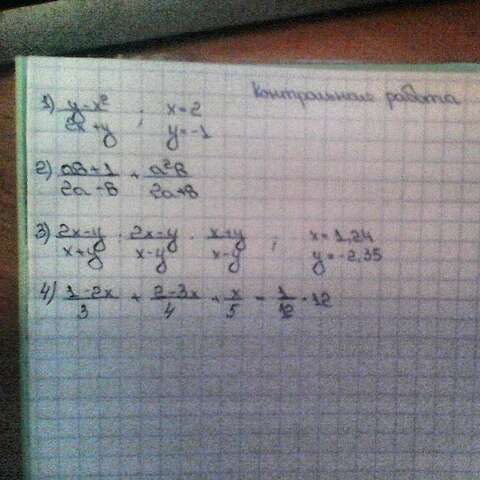 Контрольная работа
1) (y-x²)/(2x+y) ; x=2 y=-1
2) (aв+1)/(2a-в) + (a²в)/(2a+в)
3) (2x-y)/(x+y) · (2x-y)/(x-y) · (x+y)/(x-y) ; x=1,24 y=-2,35
4) (1-2x)/3 + (2-3x)/4 + x/5 = 1/12 · 12